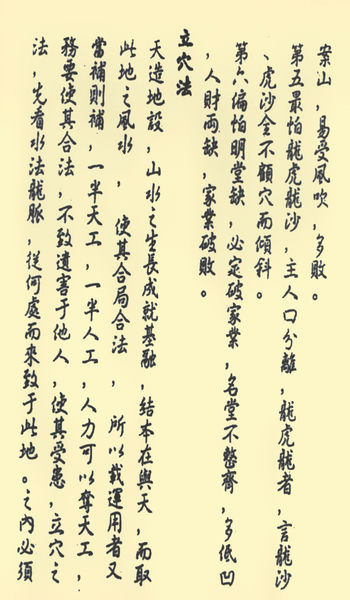 案山,易受風吹,多敗。
第五最怕龍虎龍沙,主人口分離,龍虎龍者,言龍沙
、虎沙全不顧穴而傾斜。
第六偏怕明堂缺,必定破家業,名堂不整齊,多低凹
,人財両缺,家業破敗。
立穴法
天造地設,山水之生長成就基融,結本在與天,而取
此地之風水,使其合局合法,所以載運用者又
當補則補,一半天工,一半人工,人力可以奪天工,
務要使其合法,不致遺害于他人,使其受患,立穴之
法,先看水法龍脈,從何處而來致于此地。之內必須